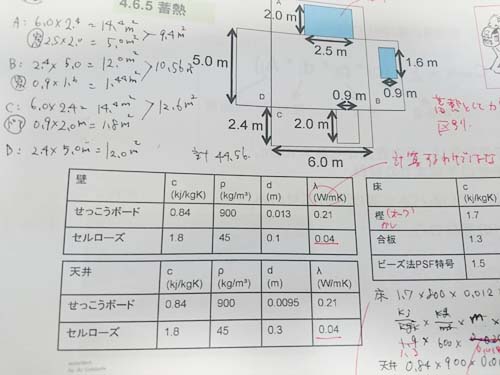 4.6.5 蓄熱
A: 6.0×2.4 = 14.4m²
窓 2.5×2.0 = 5.0m² > 9.4m²
B: 2.4×5.0 = 12.0m²
窓 0.9×1.6 = 1.44m² > 10.56m²
C: 6.0×2.4 = 14.4m²
ドア 0.9×2.0m = 1.8m² > 12.6m²
D: 2.4×5.0m = 12.0m²
計 44.56
A
2.0 m
2.5 m
5.0 m
1.6 m
D
0.9 m
B
0.9 m
C
2.4 m
2.0 m
6.0 m
壁 c (kj/kgK) ρ (kg/m³) d (m) λ (W/mK)
せっこうボード 0.84 900 0.013 0.21
セルローズ 1.8 45 0.1 0.04
天井 c (kj/kgK) ρ (kg/m³) d (m) λ (W/mK)
せっこうボード 0.84 900 0.0095 0.21
セルローズ 1.8 45 0.3 0.04
床 c (kj/kgK)
樫 (オーク) かし 1.7
合板 1.3
ビーズ法PSF特号 1.5
床 1.7×800×0.012
天井 0.84×900×0.0